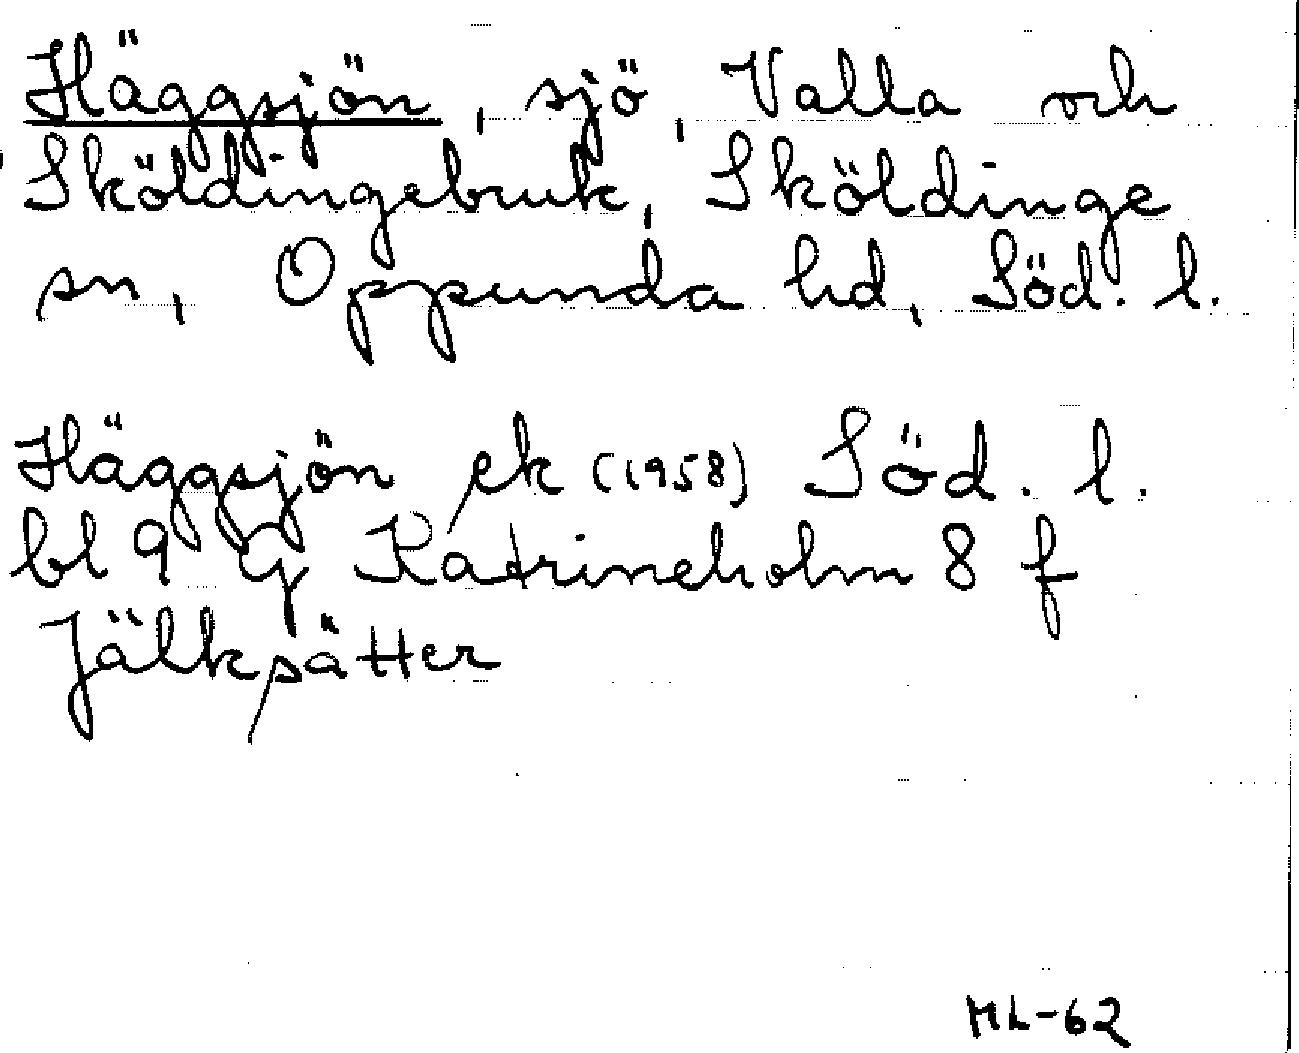 Häggsjön, sjö, Valla och
Sköldingebruk, Sköldinge
sn, Oppunda hd, Söd. l.
Häggsjön ek (1958) Söd. l.
bl 9 G Katrineholm 8 f
Jälksätter
ML-62